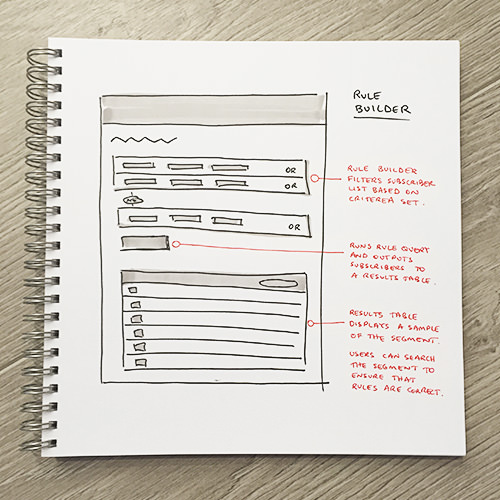 RULE
BUILDER
OR
OR
AND
OR
RULE BUILDER
FILTERS SUBSCRIBER
LIST BASED ON
CRITEREA SET.
RUNS RULE QUERY
AND OUTPUTS
SUBSCRIBERS TO
A RESULTS TABLE.
RESULTS TABLE
DISPLAYS A SAMPLE
OF THE SEGMENT.
USERS CAN SEARCH
THE SEGMENT TO
ENSURE THAT
RULES ARE CORRECT.